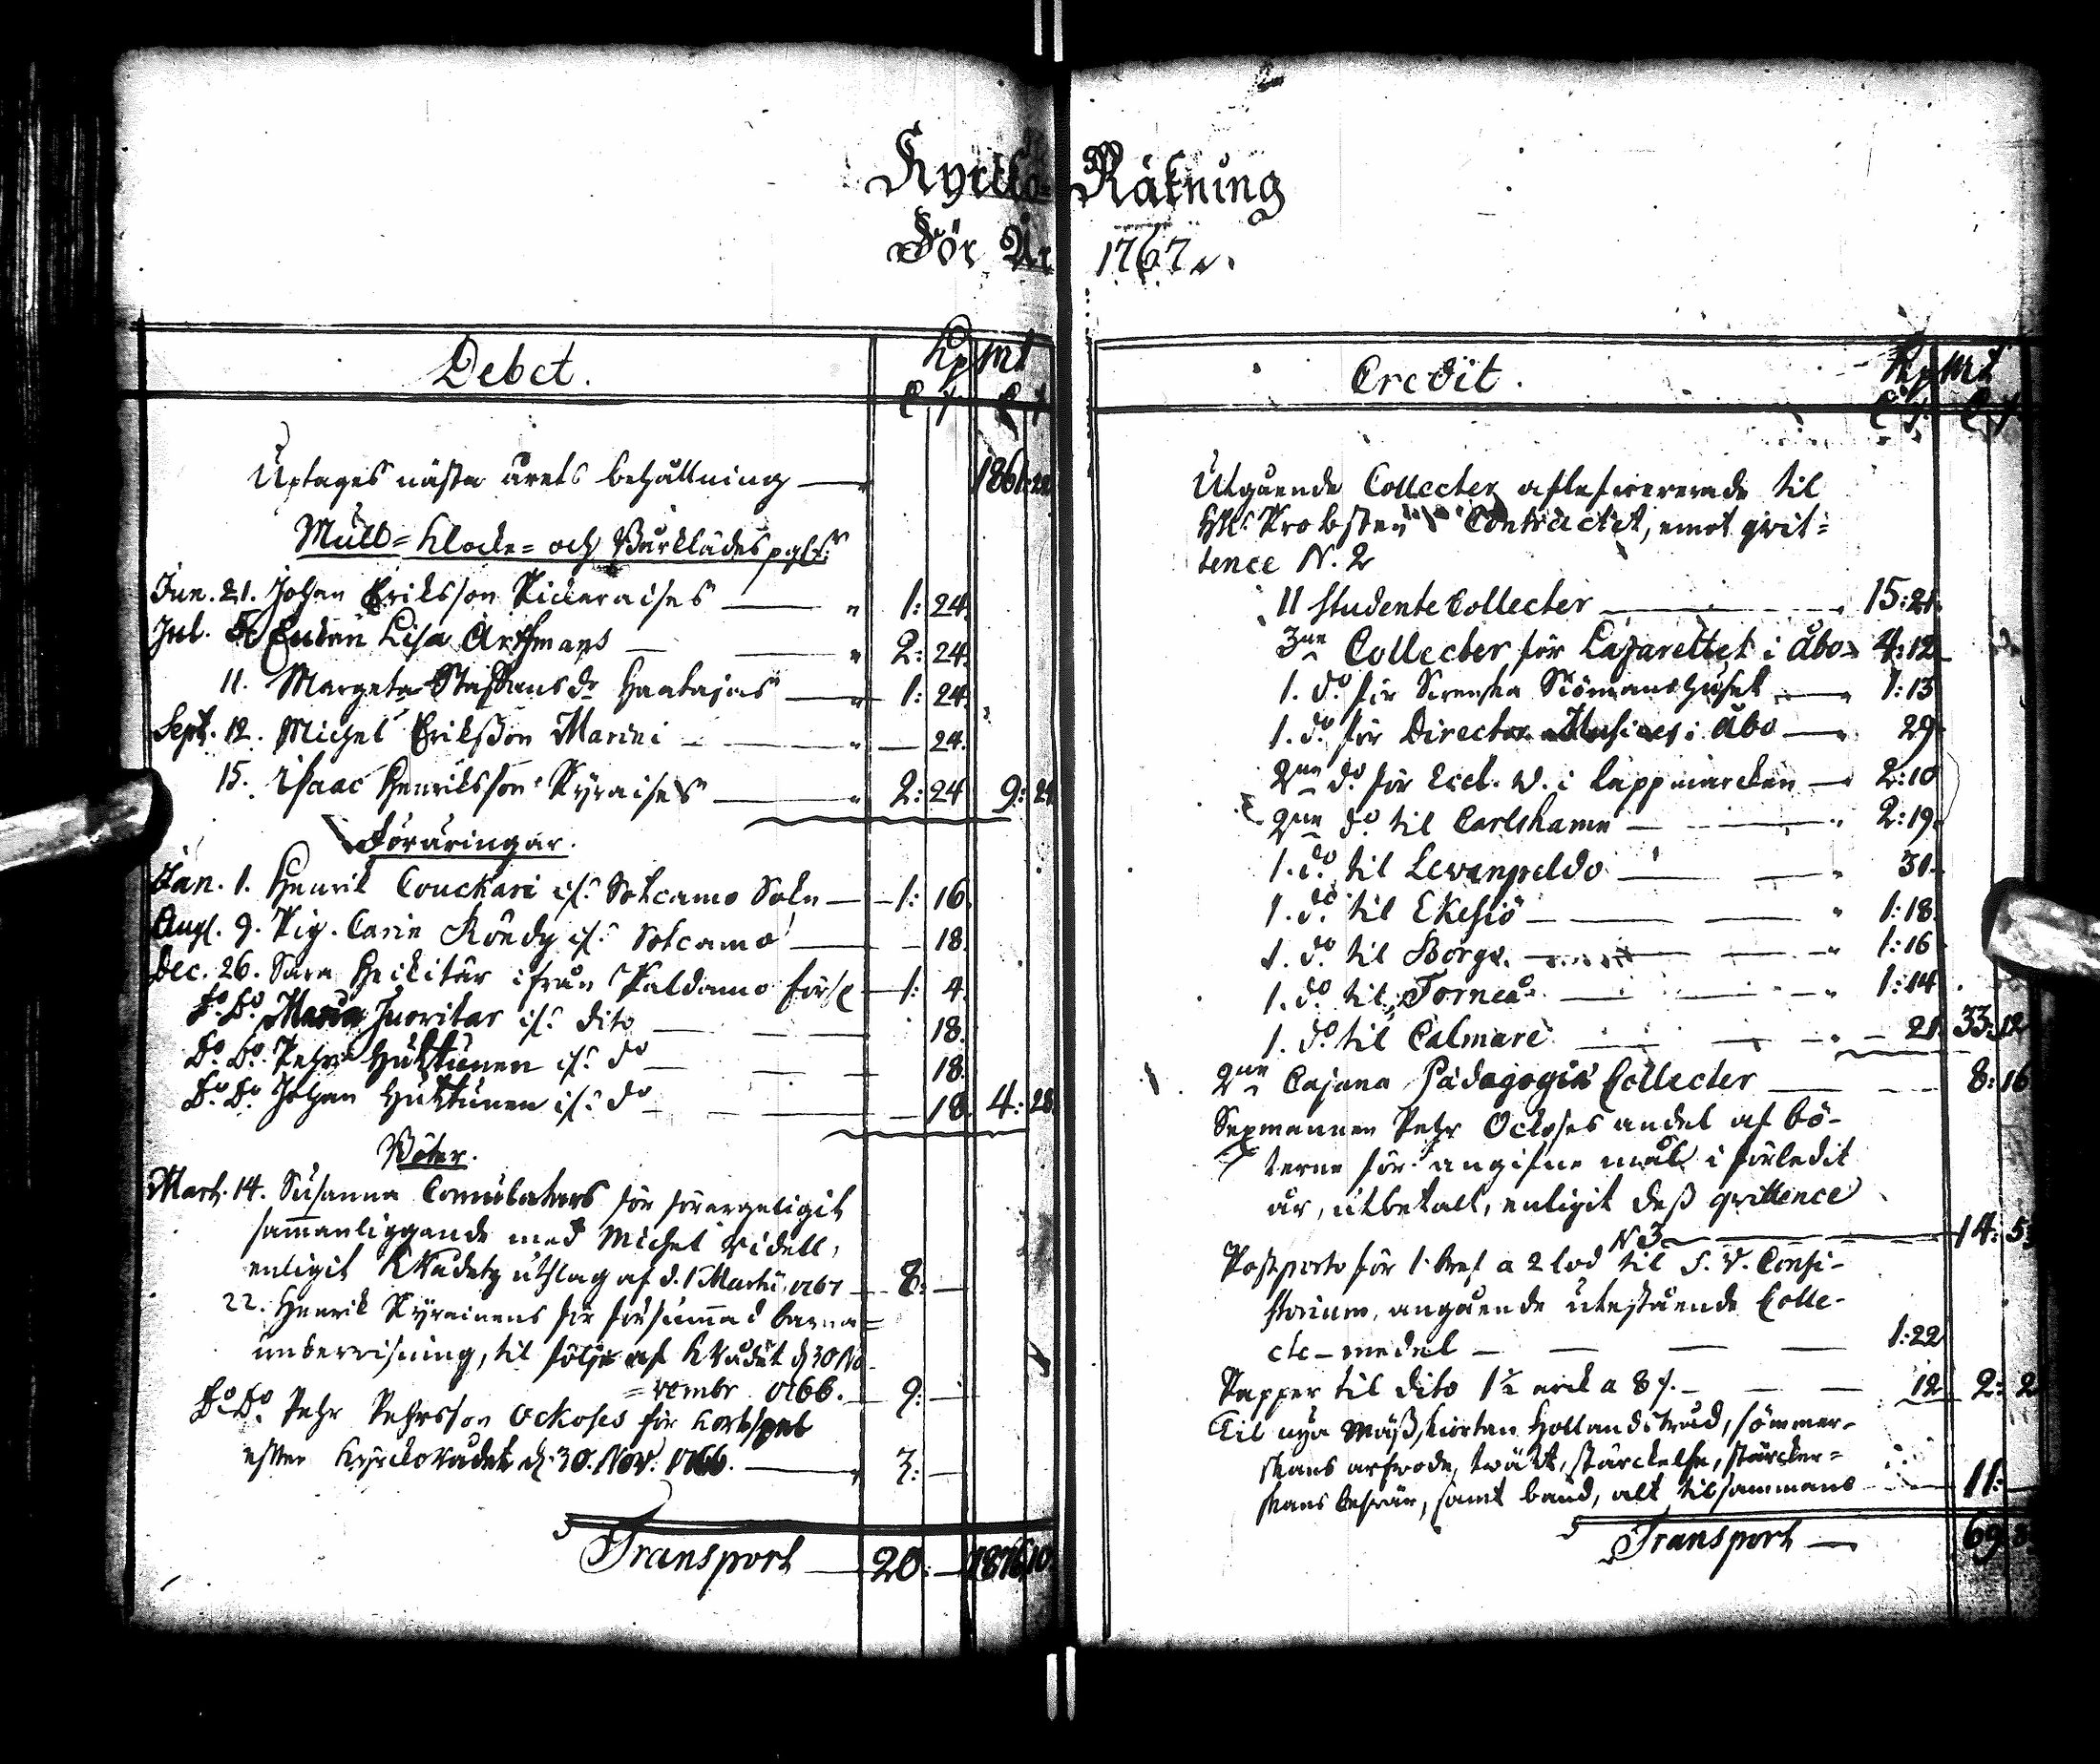 Kyrcko-Räkning
För År 1767.
Debet. Kp Mt
Uptages nästa årets behållning — 1861:
Mull= Klocke= och Bårklädes
Jun. 21. Johan Eriksson — 1: 24.
Jul. Lisa — 2: 24.
11. Margeta Staffans dr Haatajas — 1: 24.
Sept. 12. Michel Eriksson Marini — 24.
15. Isaac Henriksson Kyraises — 2: 24 9: 24
Föräringar.
Jan. 1. Henrik Couckari Sotcamo Sokn — 1: 16.
Aug. 9. Pig. Carin Sotcamo — 18.
Dec. 26. Sara ifrån Paldamo — 1: 4.
Do. Do. Maria Juoritar if: dito — 18.
Do. Do. Pehr Huttunen if: do — 18.
Do. Do. Johan Huttunen if: do — 18. 4: 28.
Böter.
Mart. 14. Susanna för förargeligit
sammanliggande med Michel Ridell,
enligit KRådetz utslag af d. 1 Martii 1767 — 8: —
22. Henrik Kyrainens för försummad barna=
undervisning, til följe af KRådet d. 30 No
=vembr 1766. — 9: —
Do. Do. Pehr Pehrsson Ockoses för kortspel
efter KyrckoRådet d. 30. Nov. 1766. — 3: —
Transport — 20: — 1876 10
Credit. Kp Mt
Utgående Collecter til
Probsten Contractet, emot qvit=
tence N. 2
11 studente Collecter — 15:21.
3ne Collecter för Lazarettet i Åbo 4:12
1. do. för Svenska Siömanshuset — 1:13
1. do. för Director Musices i Åbo — 29
2ne do. för Eccl. V. i Lappmarcken — 2:10
2ne do. til Carlshamn — 2:19.
1. do. til — 31.
1. do. til Ekesiö — 1:18.
1. do. til Borgo — 1:16
1. do. til Torneå — 1:14
1. do. til Calmare — 21. 33:12
2ne Cajana Pädagogiä Collecter — 8:16
Sexmannen Pehr Ockoses andel af bö-
terne för angifne mål i förledit
år, utbetalt, enligit dess qvittence
N 3 — 14: 5
Postporto för 1. bref a 2 lod til S. V. Consi-
storium, angående utestående Colle-
cte-medel — 1:22
Papper til dito 1½ ark a 8 — 12 2: 2
Til nya Mäss, Hollandstråd, sömmer-
skans arfwode, twätt, stärckelse, stärcker=
skans beswär, samt band, alt tilsammans — 11:
Transport — 69: